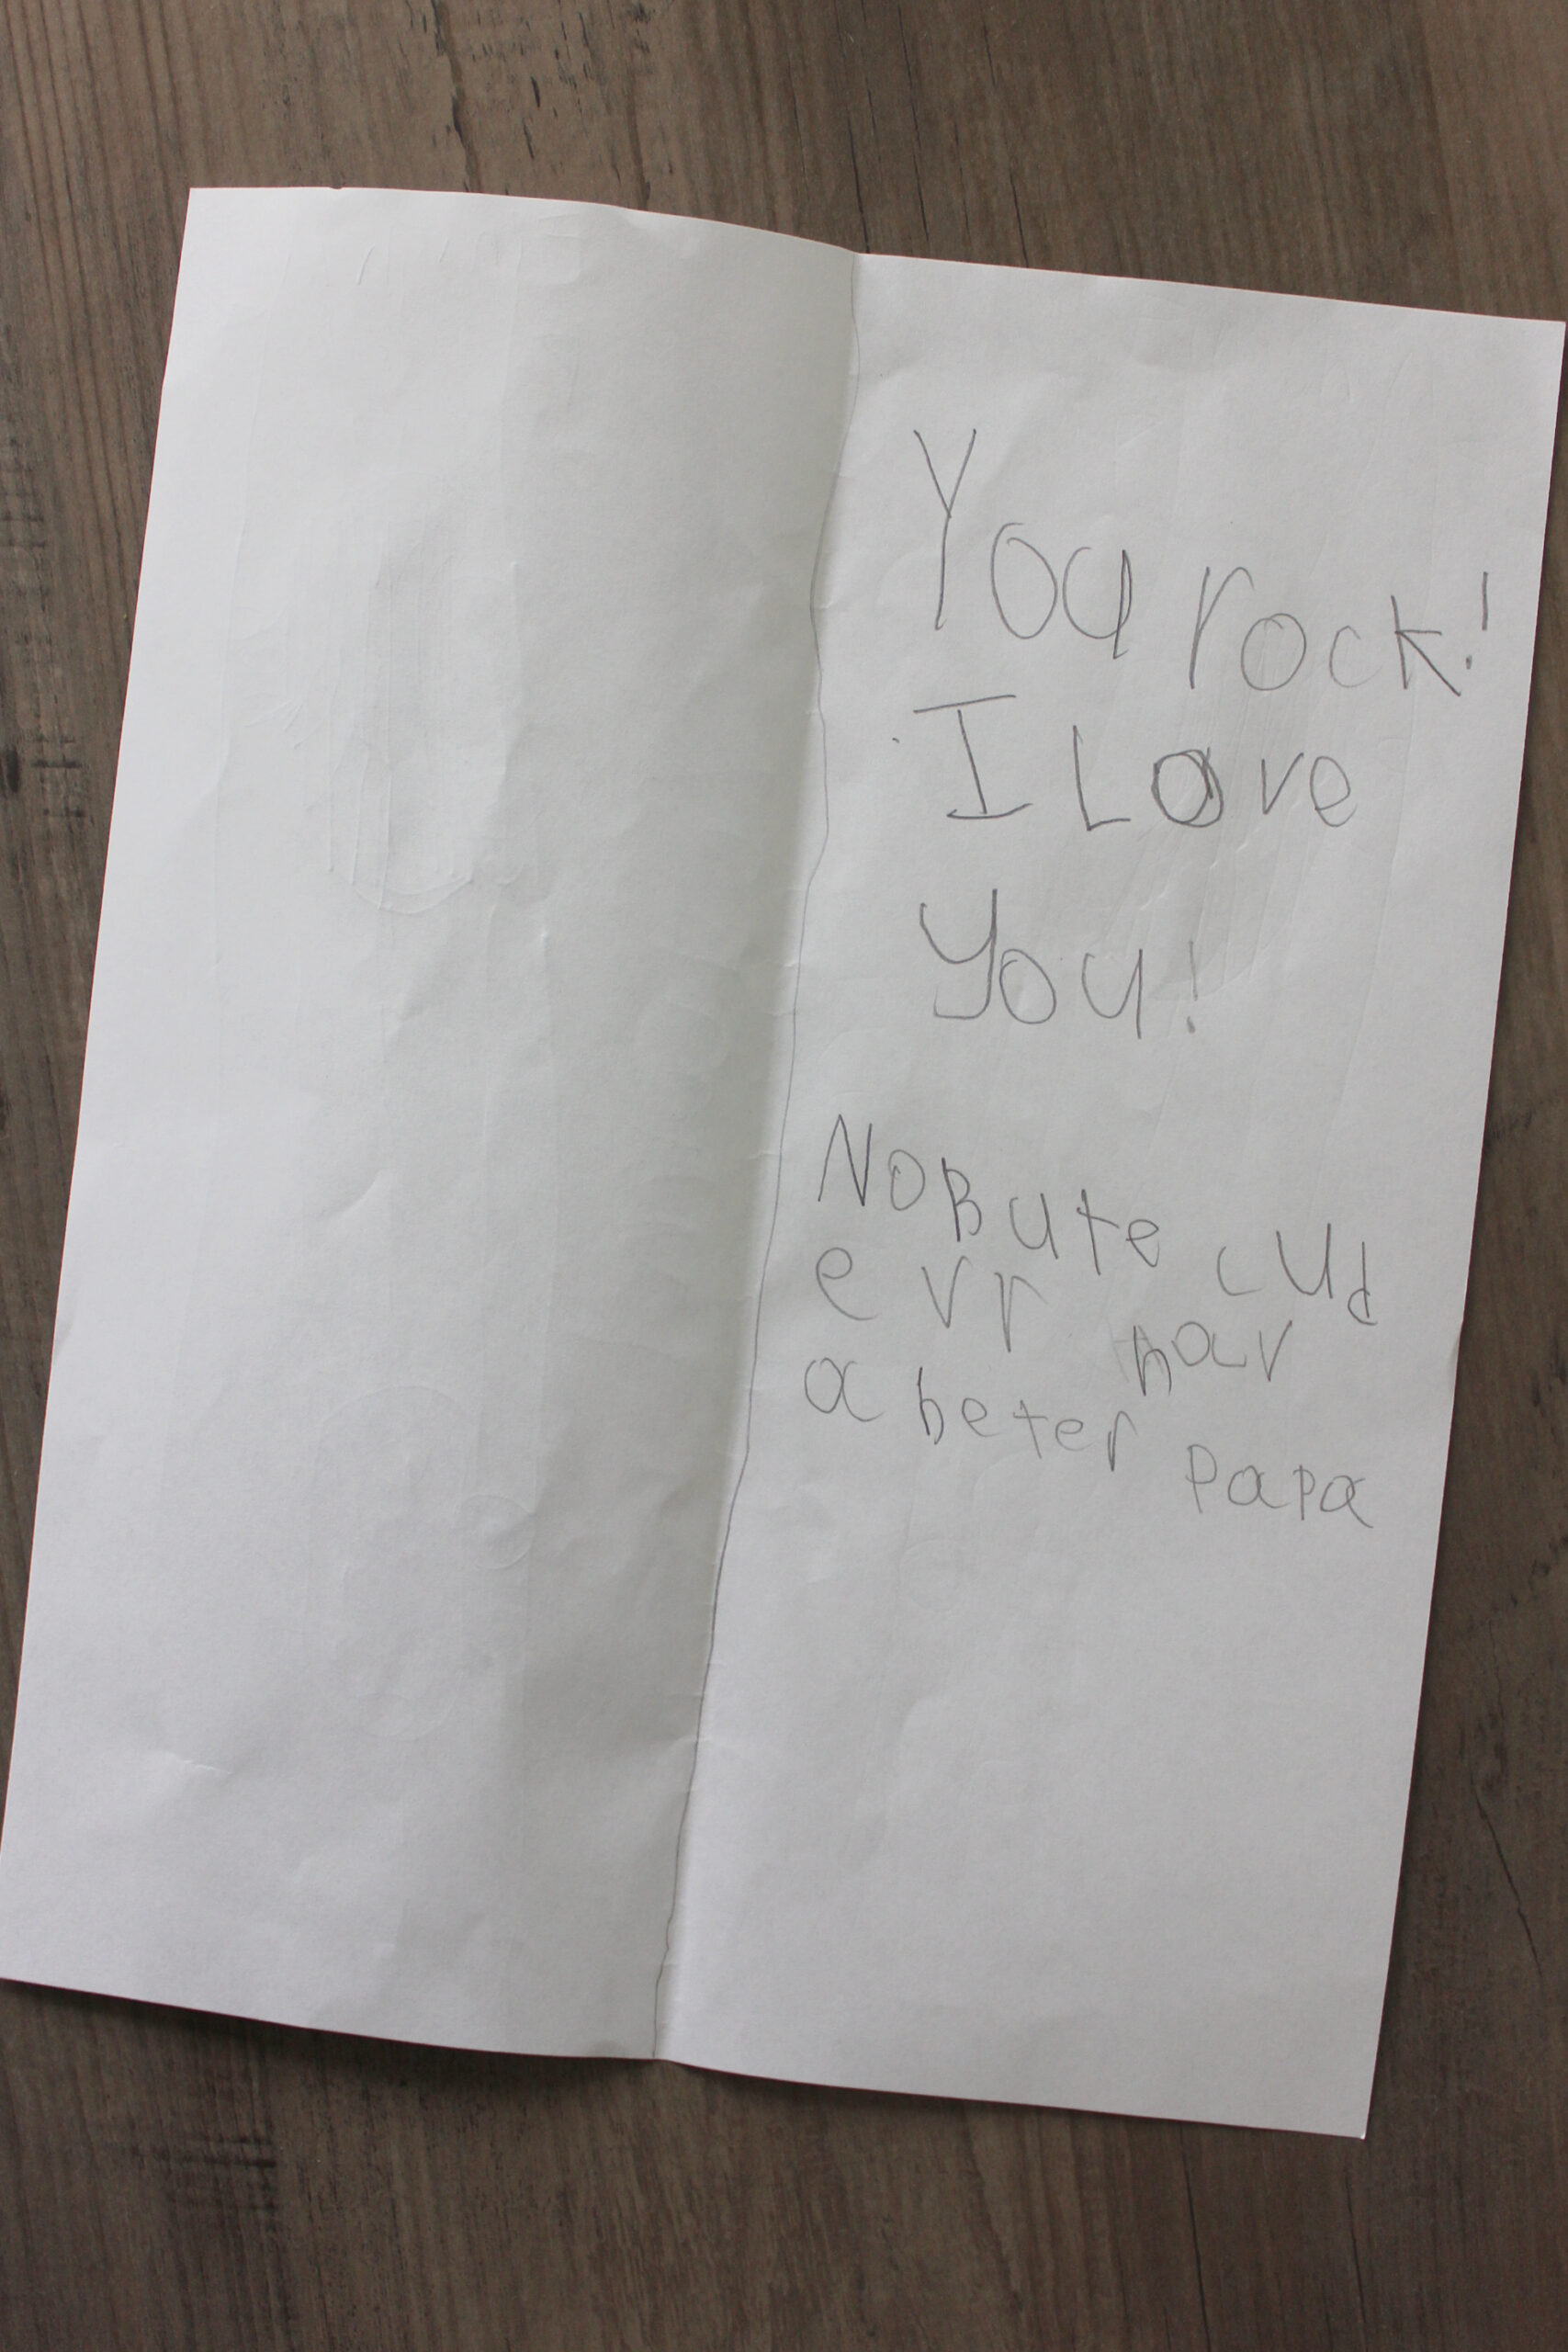 You rock!
I Love
You!
NoBute cud
evr hav
a beter
papa